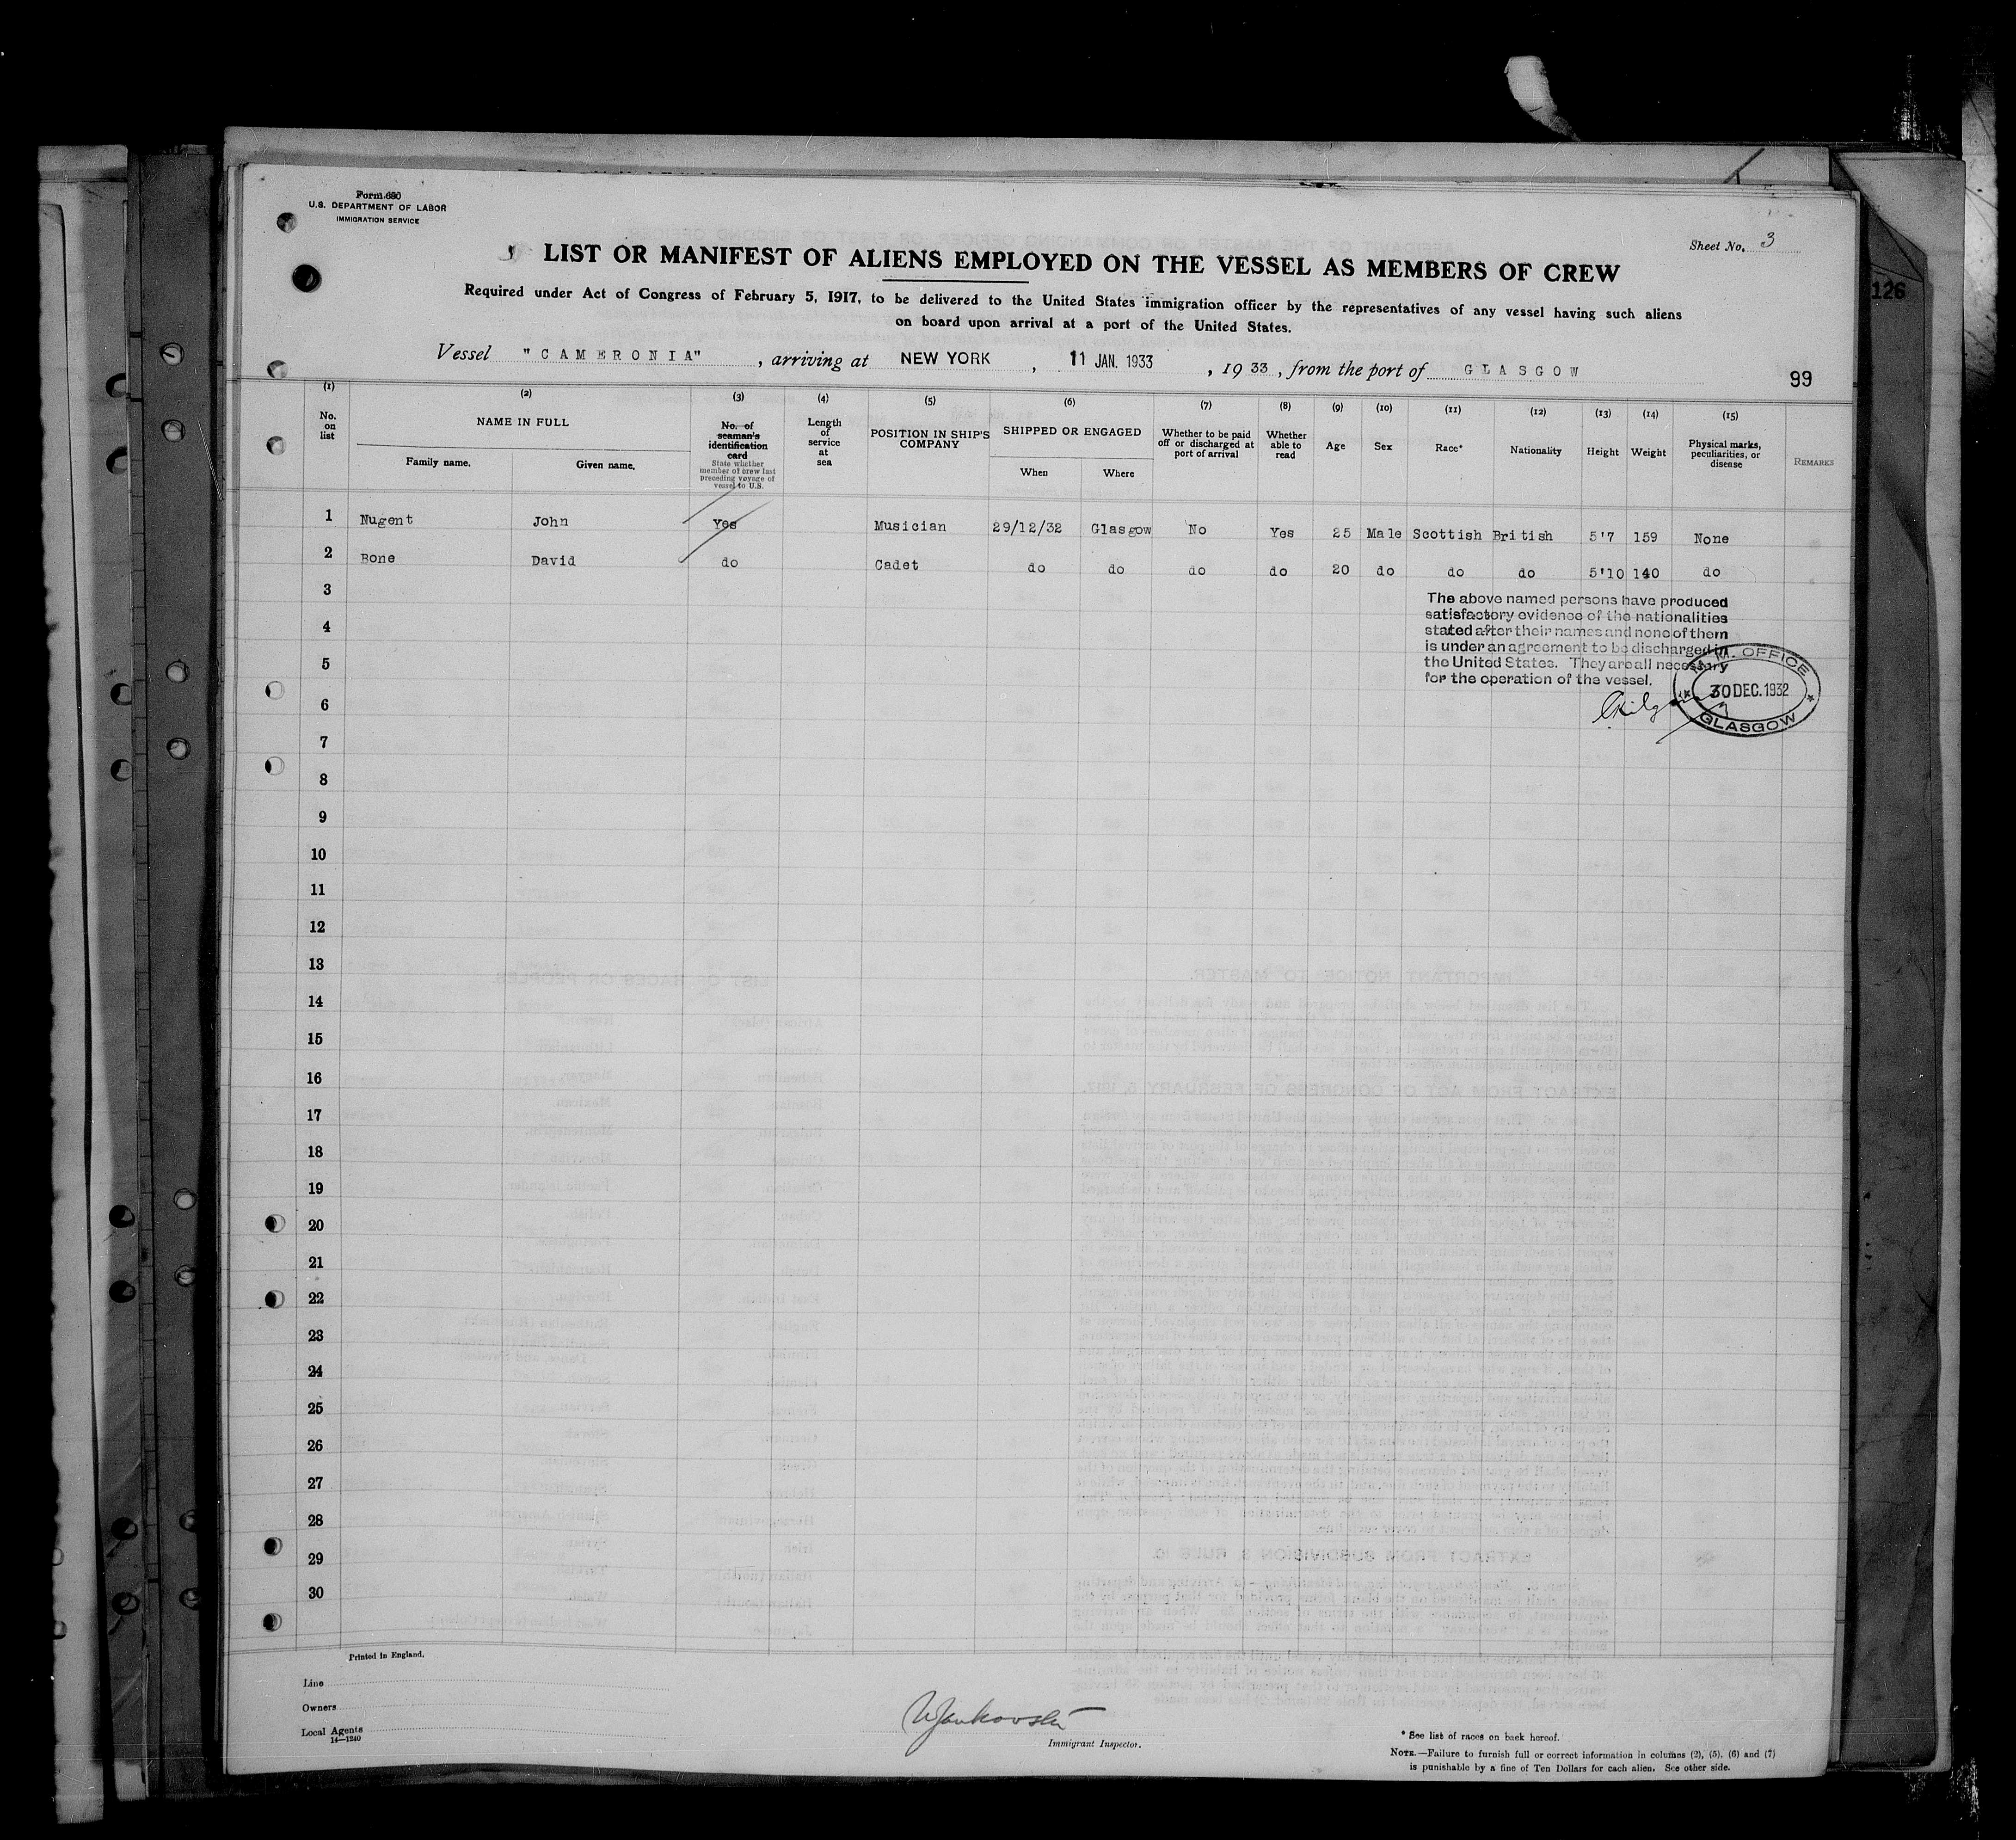 Form 680
U.S. DEPARTMENT OF LABOR
IMMIGRATION SERVICE
Sheet No. 3
LIST OR MANIFEST OF ALIENS EMPLOYED ON THE VESSEL AS MEMBERS OF CREW
Required under Act of Congress of February 5, 1917, to be delivered to the United States immigration officer by the representatives of any vessel having such aliens
on board upon arrival at a port of the United States.
Vessel "CAMERONIA", arriving at NEW YORK, 11 JAN. 1933, 1933, from the port of GLASGOW
99
126
(1) (2) (3) (4) (5) (6) (7) (8) (9) (10) (11) (12) (13) (14) (15)
No. on list
NAME IN FULL
Family name. Given name.
No. of seaman's identification card
State whether member of crew last preceding voyage of vessel to U.S.
Length of service at sea
POSITION IN SHIP'S COMPANY
SHIPPED OR ENGAGED
When Where
Whether to be paid off or discharged at port of arrival
Whether able to read
Age
Sex
Race*
Nationality
Height
Weight
Physical marks, peculiarities, or disease
REMARKS
1 Nugent John Yes Musician 29/12/32 Glasgow No Yes 25 Male Scottish British 5'7 159 None
2 Bone David do Cadet do do do do 20 do do do 5'10 140 do
3
The above named persons have produced
satisfactory evidence of the nationalities
4
stated after their names and none of them
is under an agreement to be discharged in
5
the United States. They are all necessary
for the operation of the vessel.
M.M. OFFICE
30 DEC. 1932
GLASGOW
6
7
8
9
10
11
12
13
14
15
16
17
18
19
20
21
22
23
24
25
26
27
28
29
30
Printed in England.
Line
Owners
Local Agents
14—1240
Immigrant Inspector.
* See list of races on back hereof.
NOTE.—Failure to furnish full or correct information in columns (2), (5), (6) and (7)
is punishable by a fine of Ten Dollars for each alien. See other side.